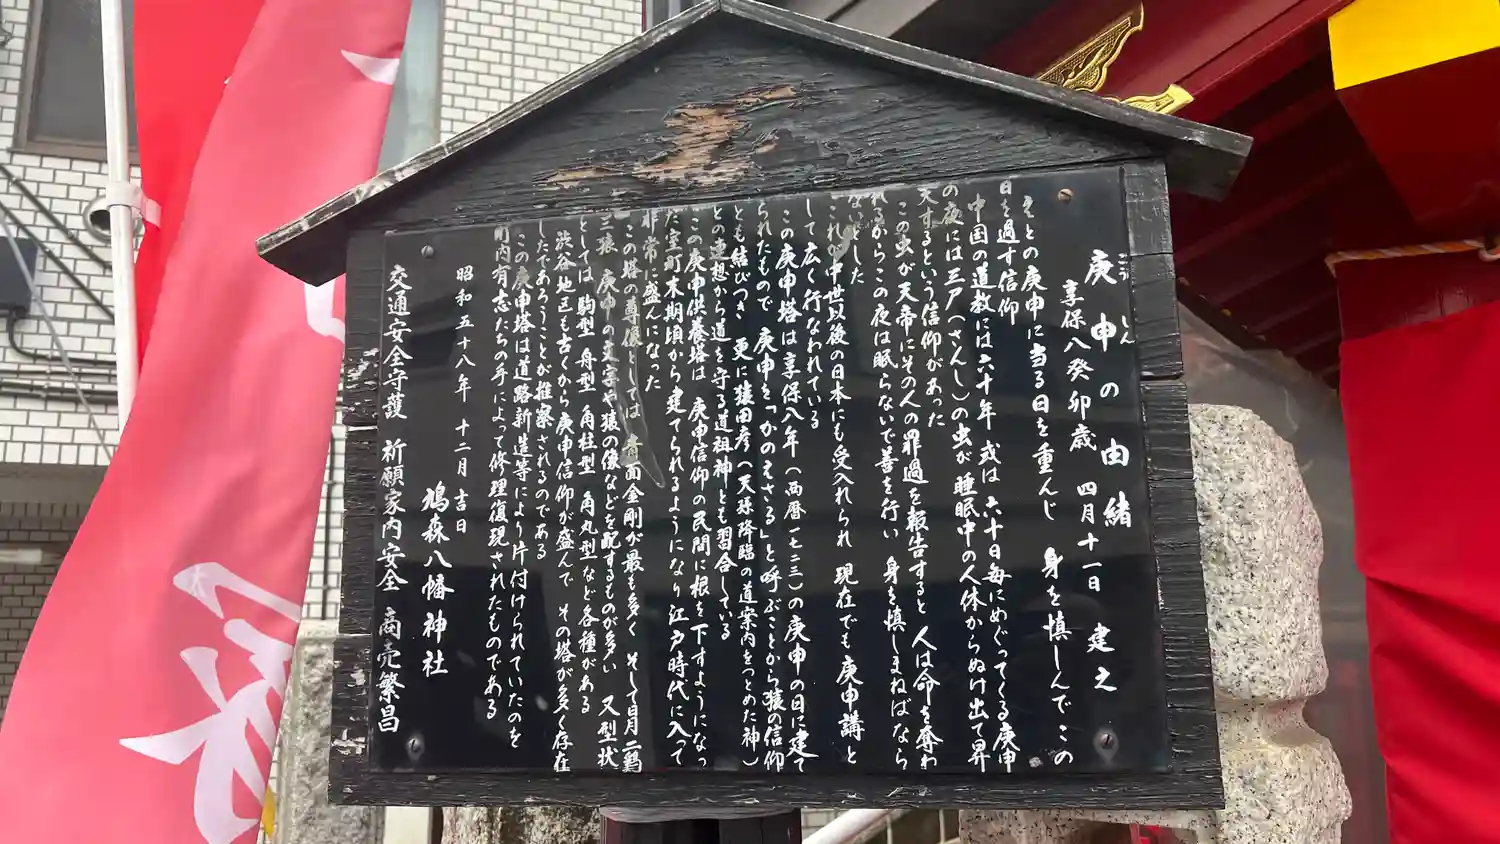 庚申の由緒
こうしん
享保八癸卯歳 四月十一日 建之
えとの庚申に当る日を重んじ 身を慎しんでこの
日を過す信仰
中国の道教には六十年或は六十日毎にめぐってくる庚申
の夜には三尸(さんし)の虫が睡眠中の人体からぬけ出て昇
天するという信仰があった
この虫が天帝にその人の罪過を報告すると 人は命を奪わ
れるからこの夜は眠らないで善を行い 身を慎しまねばなら
ないとした
これが中世以後の日本にも受入れられ 現在でも庚申講と
して広く行なわれている
この庚申塔は享保八年(西暦一七二三)の庚申の日に建て
られたもので 庚申を「かのえさる」と呼ぶことから猿の信仰
とも結びつき 更に猿田彦(天孫降臨の道案内をつとめた神)
との連想から道を守る道祖神とも習合している
この庚申供養塔は 庚申信仰の民間に根を下すようになっ
た室町末期頃から建てられるようになり江戸時代に入って
非常に盛んになった
この塔の尊像としては 青面金剛が最も多く そして日月二鶏
三猿 庚申の文字や猿の像などを配するものが多い 又型状
としては 駒型 舟型 角柱型 角丸型など各種がある
渋谷地区も古くから庚申信仰が盛んで その塔が多く存在
したであろうことが推察されるのである
この庚申塔は道路新造等により片付けられていたのを
町内有志たちの手によって修理復現されたものである
昭和五十八年 十二月吉日
鳩森八幡神社
交通安全守護 祈願家内安全 商売繁昌